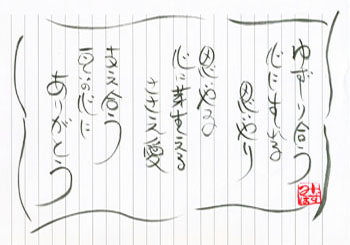 ゆずり合う
心にすわる
思いやり
思いやる
心に芽生える
ささえ愛
支え合う
互の心に
ありがとう